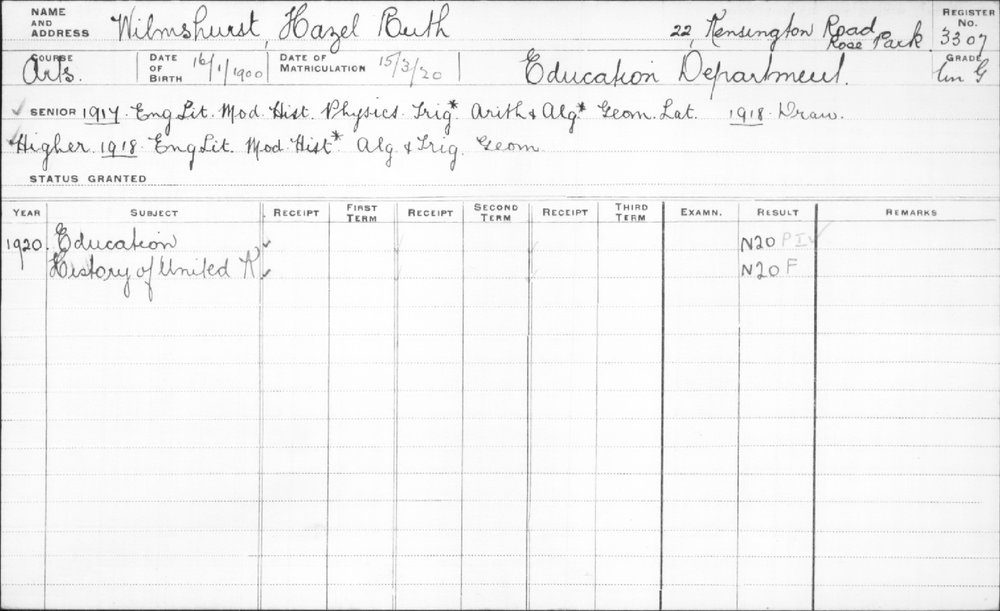 NAME AND ADDRESS Wilmshurst, Hazel Ruth 22, Kensington Road Rose Park REGISTER No. 3307
COURSE Arts. DATE OF BIRTH 16/1/1900 DATE OF MATRICULATION 15/3/20 Education Department. GRADE Un G
SENIOR 1917 Eng Lit. Mod. Hist. Physics. Trig* Arith & Alg* Geom. Lat. 1918. Draw.
Higher. 1918. Eng Lit. Mod. Hist* Alg & Trig. Geom
STATUS GRANTED
YEAR SUBJECT RECEIPT FIRST TERM RECEIPT SECOND TERM RECEIPT THIRD TERM EXAMN. RESULT REMARKS
1920. Education ✓ N20 P I ✓
History of United K ✓ N20 F